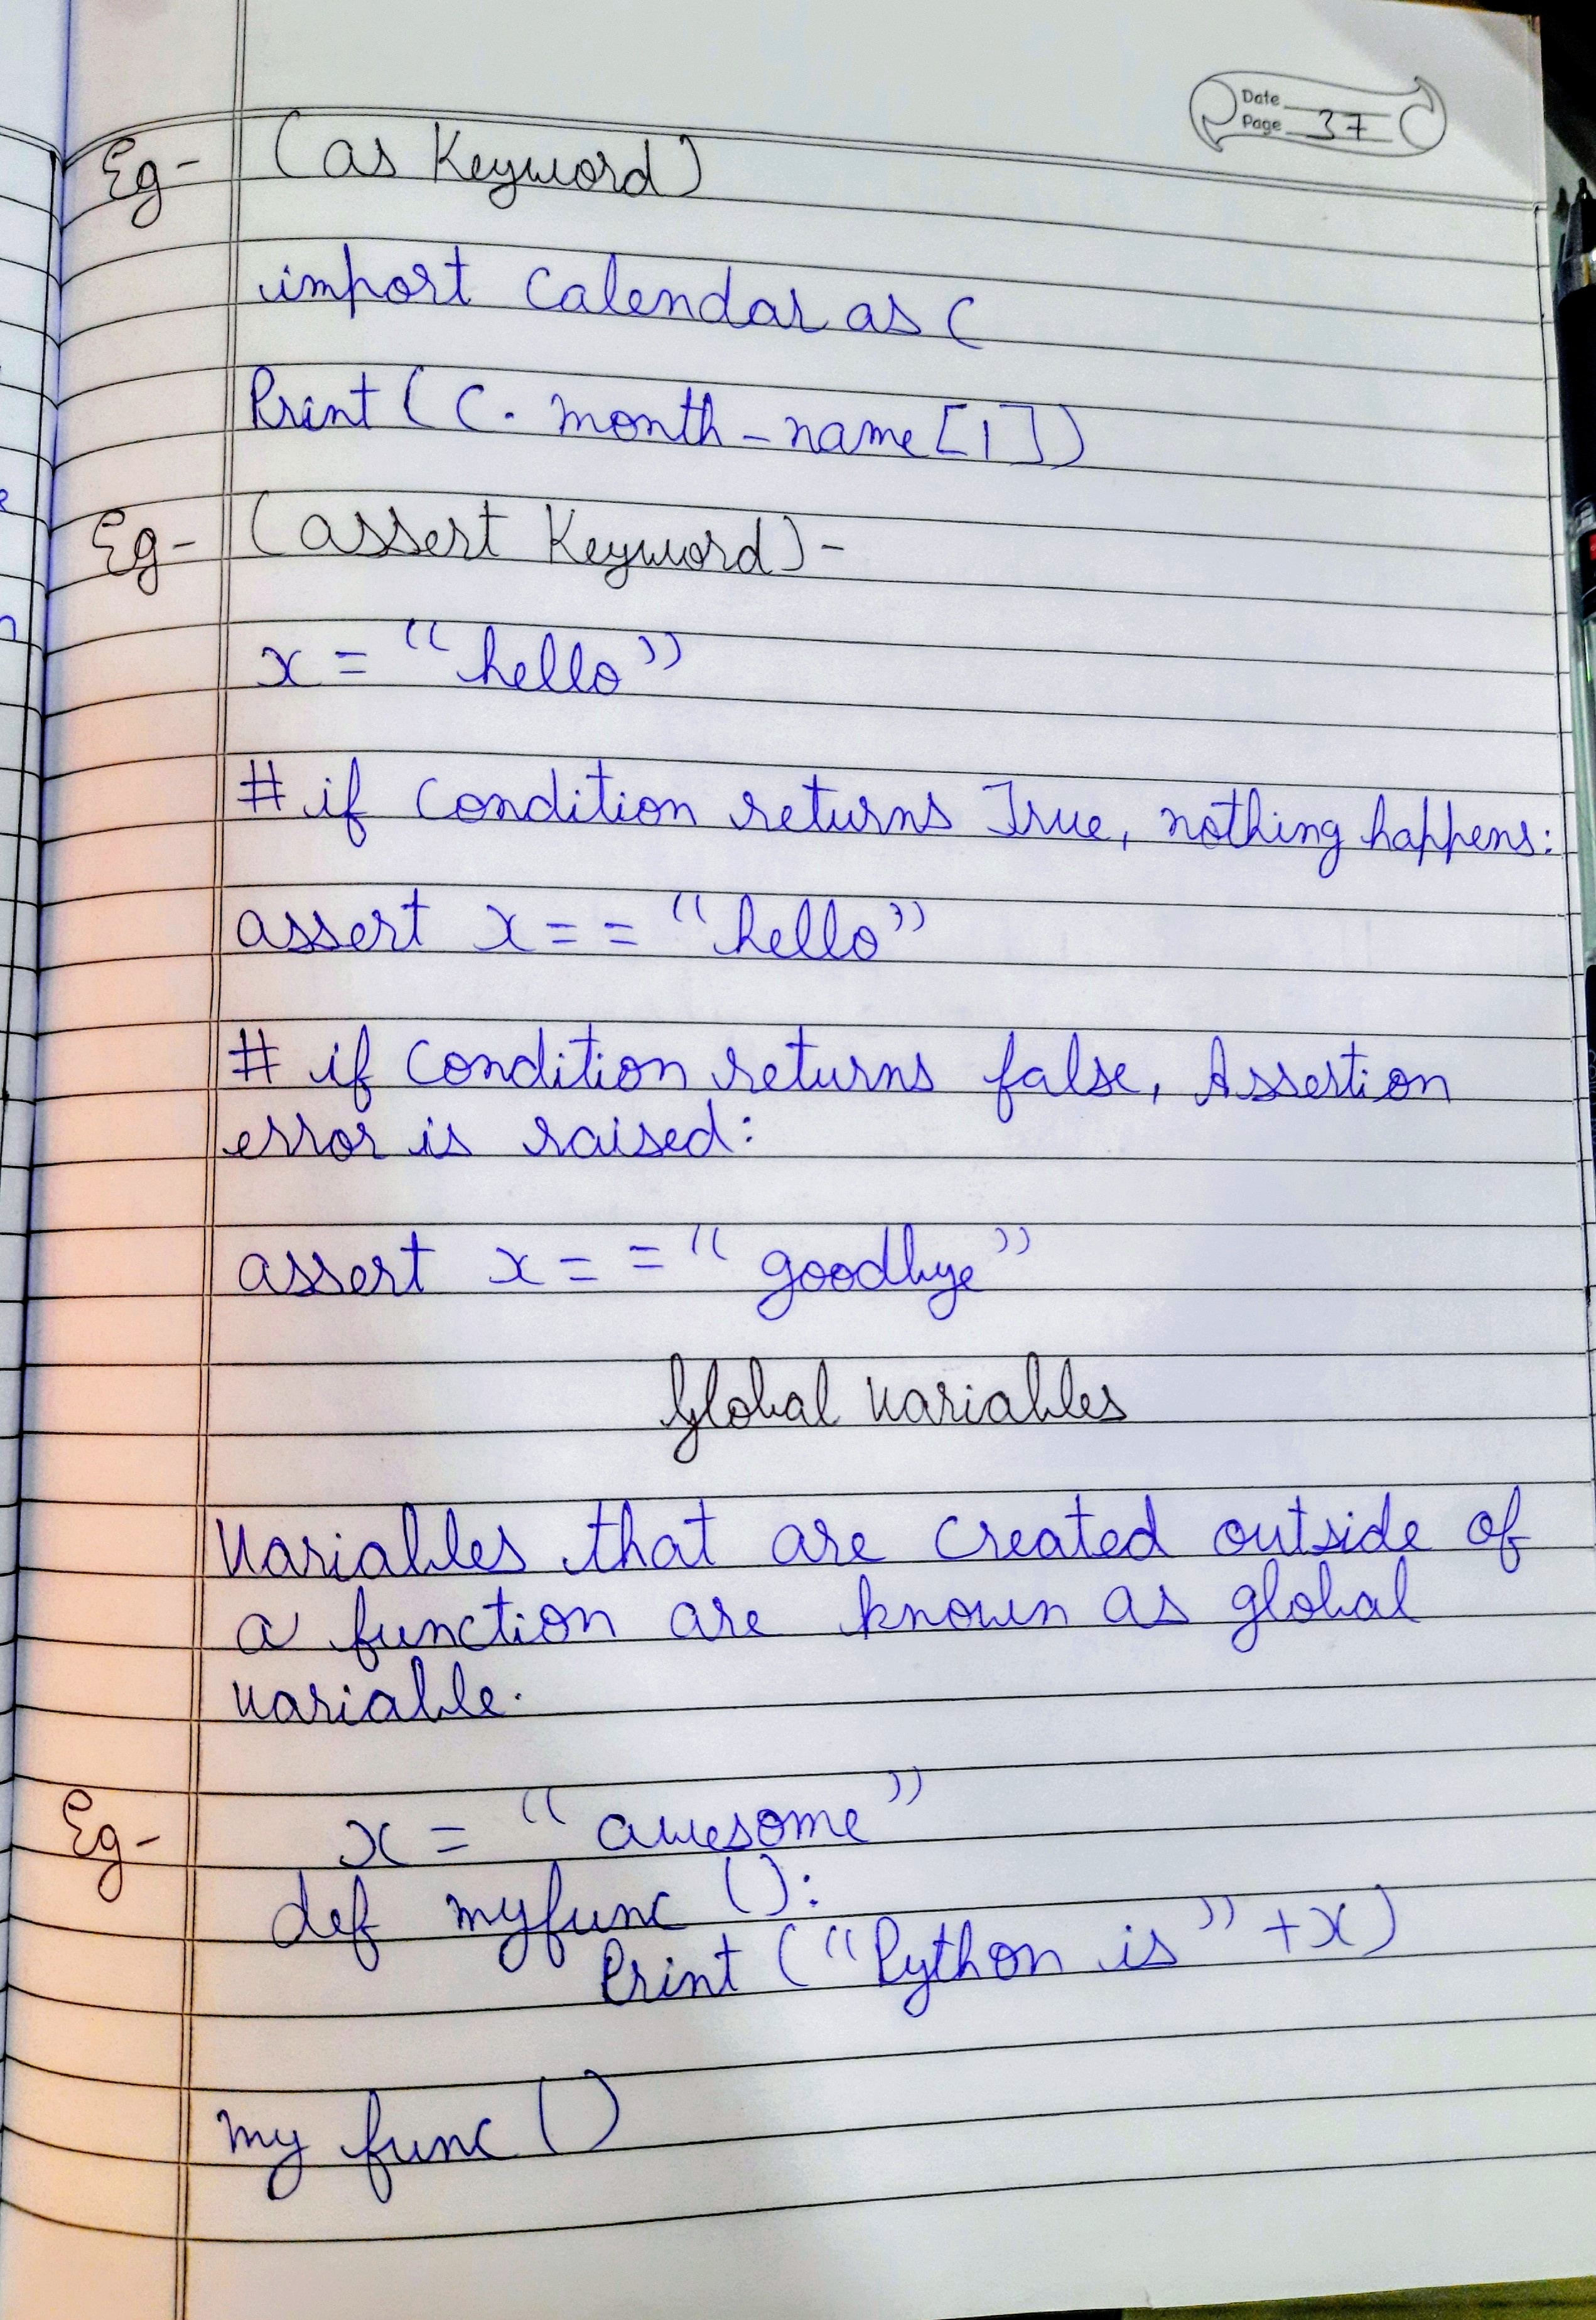 Date
Page 37
Eg- (as Keyword)
import calendar as c
Print (c. month_name[1])
Eg- (assert Keyword)-
x = "hello"
# if condition returns True, nothing happens:
assert x == "hello"
# if condition returns false, Assertion
error is raised:
assert x == "goodbye"
Global variables
Variables that are created outside of
a function are known as global
variable.
Eg- x = "awesome"
def myfunc ():
Print ("Python is" +x)
my func ()